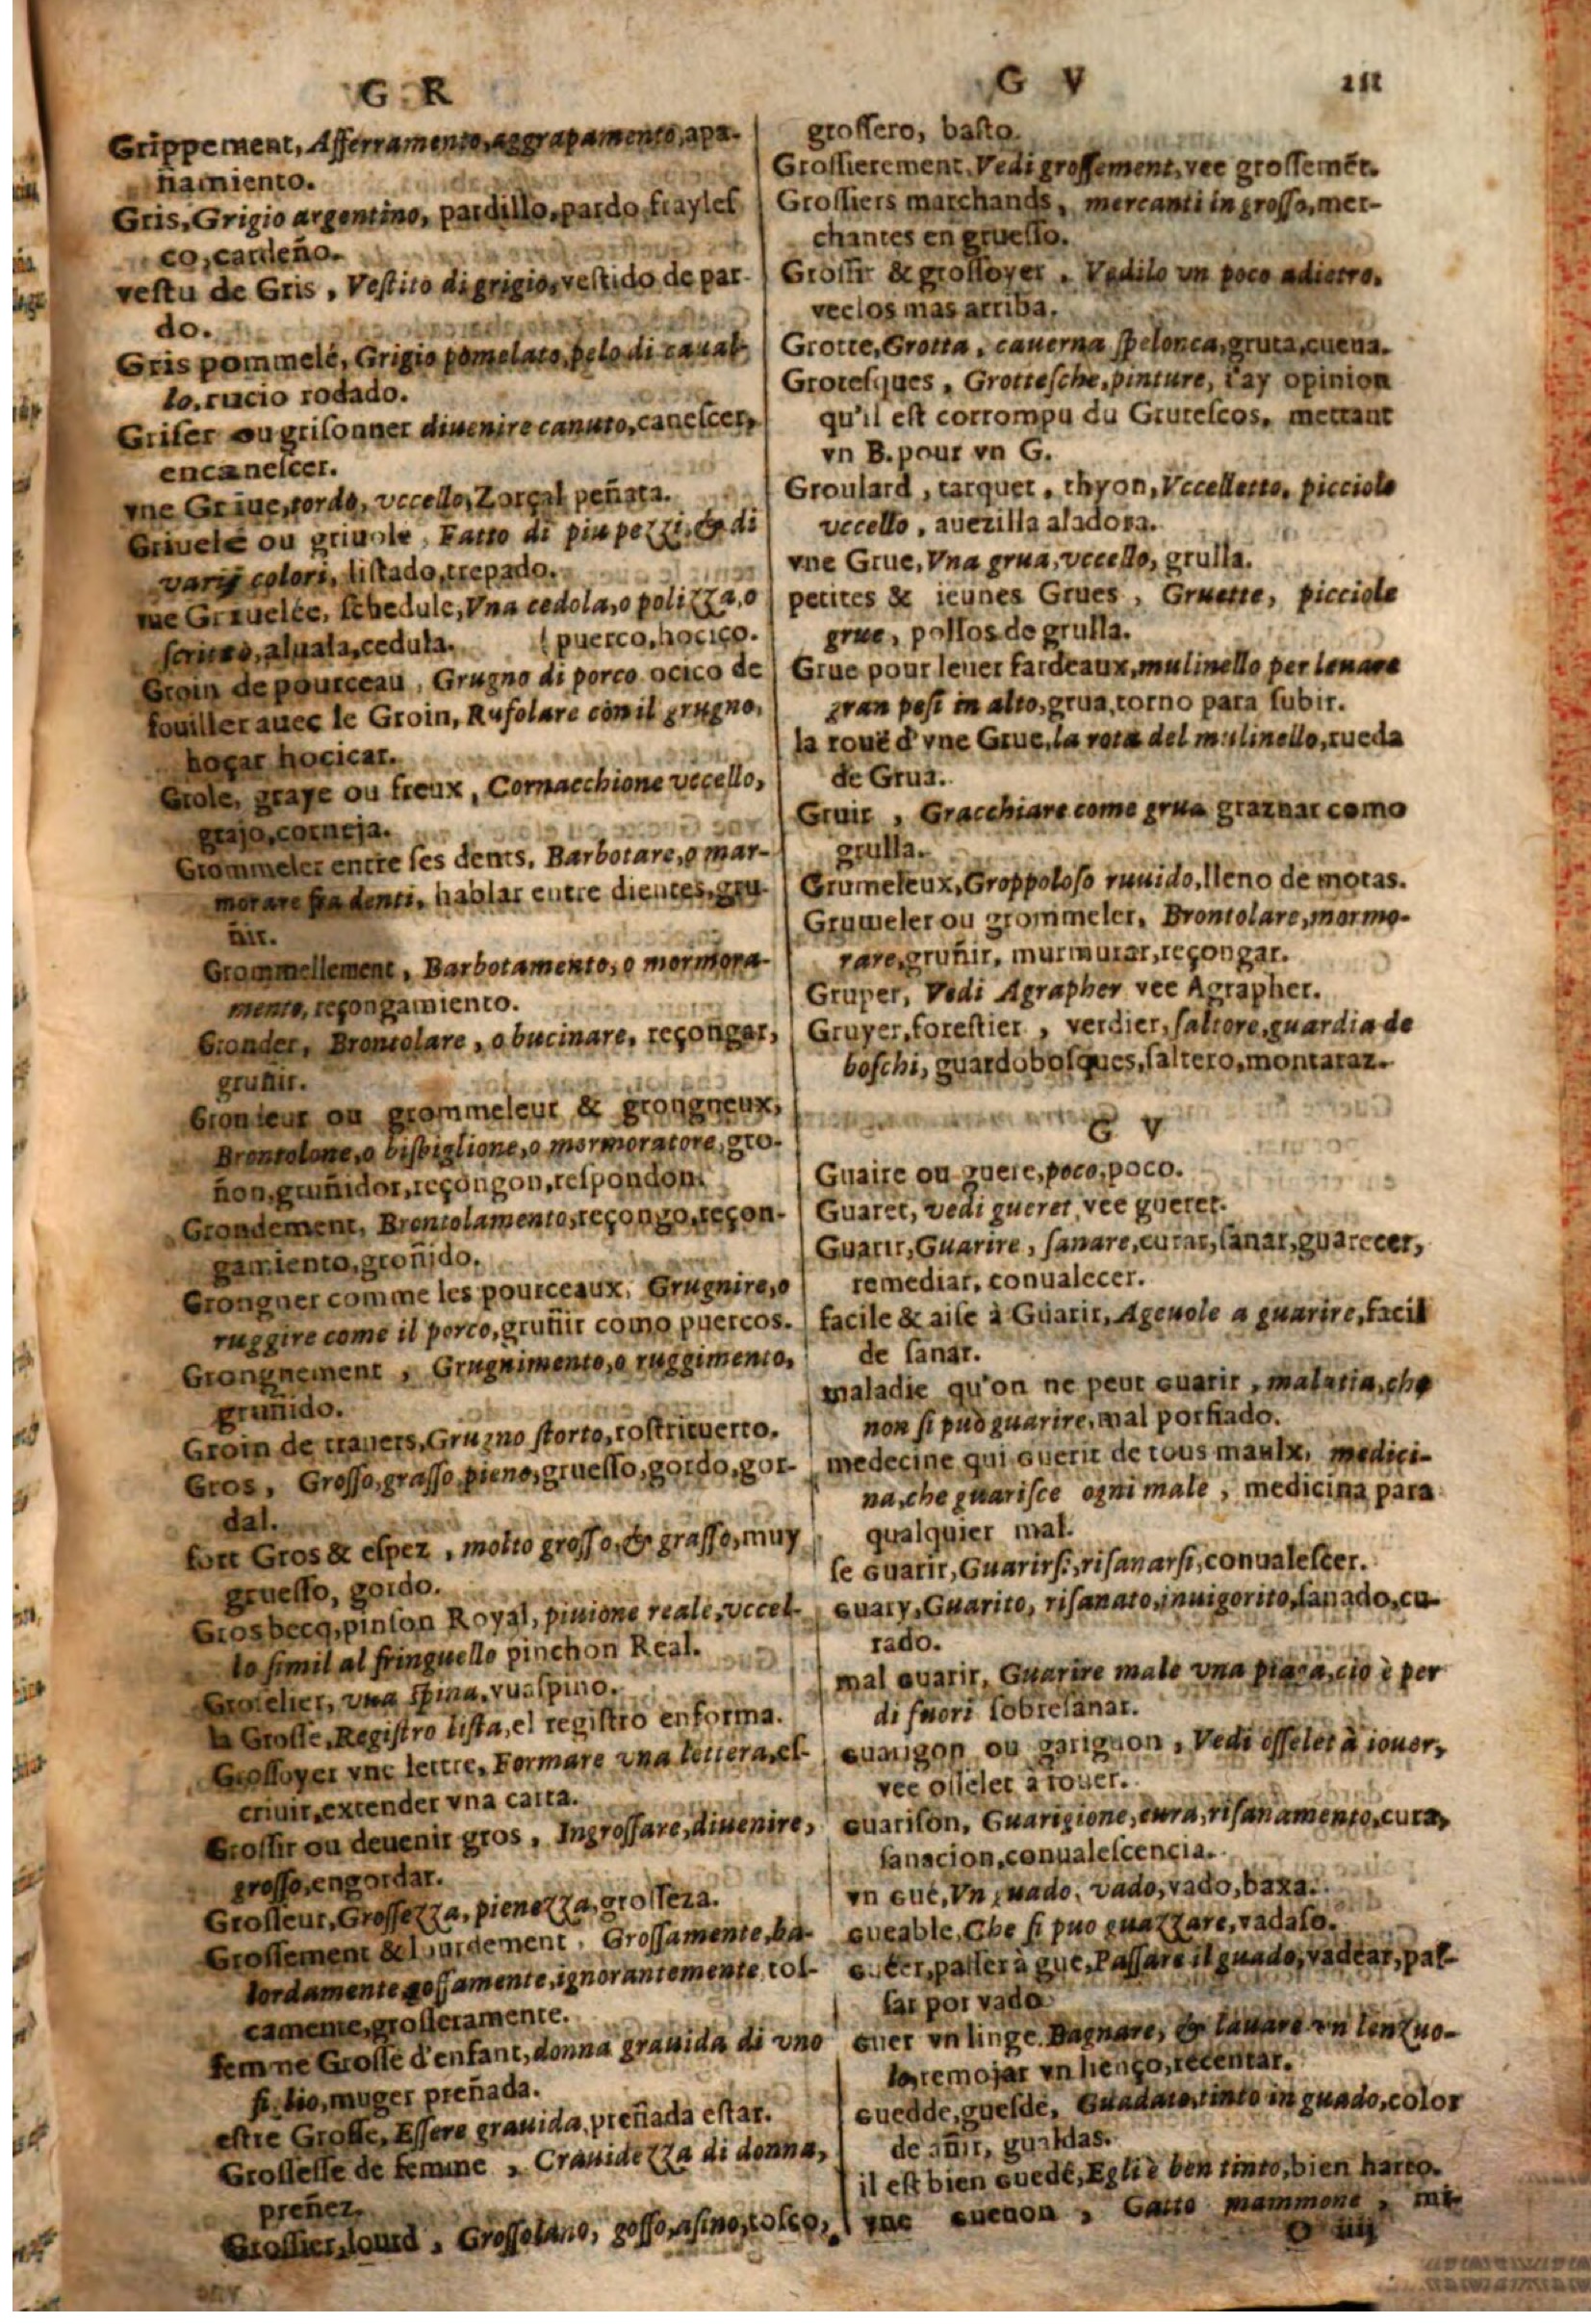 G R
Grippement, Afferramento, aggrapamento, apa-
ñamiento.
Gris, Grigio argentino, pardillo, pardo frayles
co, cardeño.
vestu de Gris, Vestito di grigio, vestido de par
do.
Gris pommelé, Grigio pomelato, pelo di caual-
lo, rucio rodado.
Griser ou grisonner diuenire canuto, canescer,
encanescer.
vne Griue, tordo, vccello, Zorçal peñata.
Griuelé ou griuolé, Fatto di piu pezzi, & di
varij colori, listado, trepado.
vne Griuelée, schedule, Vna cedola, o polizza, o
scritto, aluala, cedula. ( puerco, hocico.
Groin de pourceau, Grugno di porco ocico de
fouiller auec le Groin, Rufolare con il grugno,
hoçar hocicar.
Grole, graye ou freux, Cornacchione vccello,
grajo, corneja.
Grommeler entre ses dents, Barbotare, o mar-
morare fra denti, hablar entre dientes, gru-
ñir.
Grommellement, Barbotamento, o mormora-
mento, reçongamiento.
Gronder, Brontolare, o bucinare, reçongar,
gruñir.
Grondeur ou grommeleur & grongneux,
Brontolone, o bisbiglione, o mormoratore, gro-
ñon, gruñidor, reçongon, respondon.
Grondement, Brontolamento, reçongo, reçon-
gamiento, groñido.
Grongner comme les pourceaux, Grugnire, o
ruggire come il porco, gruñir como puercos.
Grongnement, Grugnimento, o ruggimento,
gruñido.
Groin de trauers, Grugno storto, rostrituerto.
Gros, Grosso, grasso pieno, gruesso, gordo, gor-
dal.
fort Gros & espez, molto grosso, & grasso, muy
gruesso, gordo.
Grosbecq, pinson Royal, piuione reale, vccel-
lo simil al fringuello pinchon Real.
Groselier, vua spina, vuaspino.
la Grosse, Registro lista, el registro enforma.
Grossoyer vne lettre, Formare vna lettera, es-
criuir, extender vna carta.
Grossir ou deuenir gros, Ingrossare, diuenire,
grosso, engordar.
Grosseur, Grossezza, pienezza, grosseza.
Grossement & lourdement, Grossamente, ba-
lordamente goffamente, ignorantemente tos-
camente, grosseramente.
femme Grosse d'enfant, donna grauida di vno
figlio, muger preñada.
estre Grosse, Essere grauida, preñada estar.
Grossesse de femme, Crauidezza di donna,
preñez.
Grossier, lourd, Grossolano, goffo, asino, tosco,
G V 211
grossero, basto.
Grossierement, Vedi grossement, vee grossemēt.
Grossiers marchands, mercanti in grosso, mer-
chantes en gruesso.
Grossir & grossoyer, Vedilo vn poco adietro,
veelos mas arriba.
Grotte, Grotta, cauerna spelonca, gruta, cueua.
Grotesques, Grottesche, pinture, i'ay opinion
qu'il est corrompu du Grutescos, mettant
vn B. pour vn G.
Groulard, tarquet, thyon, Vccelletto, picciolo
vccello, auezilla aladora.
vne Grue, Vna grua, vccello, grulla.
petites & ieunes Grues, Gruette, picciole
grue, pollos de grulla.
Grue pour leuer fardeaux, mulinello per leuare
gran pesi in alto, grua, torno para subir.
la rouë d'vne Grue, la rota del mulinello, rueda
de Grua.
Gruir, Gracchiare come grua graznar como
grulla.
Grumeleux, Groppoloso ruuido, lleno de motas.
Grumeler ou grommeler, Brontolare, mormo-
rare, gruñir, murmurar, reçongar.
Gruper, Vedi Agrapher vee Agrapher.
Gruyer, forestier, verdier, saltore, guardia de
boschi, guardobosques, saltero, montaraz.
G V
Guaire ou guere, poco, poco.
Guaret, vedi gueret, vee gueret.
Guarir, Guarire, sanare, curar, sanar, guarecer,
remediar, conualecer.
facile & aise à Guarir, Ageuole a guarire, facil
de sanar.
maladie qu'on ne peut Guarir, malatia, che
non si può guarire, mal porfiado.
medecine qui Guerit de tous maulx, medici-
na, che guarisce ogni male, medicina para
qualquier mal.
se Guarir, Guarirsi, risanarsi, conualescer.
Guary, Guarito, risanato, inuigorito, sanado, cu-
rado.
mal Guarir, Guarire male vna piaga, cio è per
di fuori sobresanar.
Guarigon ou garignon, Vedi osselet à iouer,
vee osselet à iouer.
Guarison, Guarigione, cura, risanamento, cura,
sanacion, conualescencia.
vn Gué, Vn guado, vado, vado, baxa.
Gueable, Che si puo guazzare, vadaso.
Guéer, passer à gué, Passare il guado, vadear, pas-
sar por vado.
Guer vn linge, Bagnare, & lauare vn lenzuo-
lo, remojar vn lienço, recentar.
Guedde, guesde, Guadato, tinto in guado, color
de añir, gualdas.
il est bien Guedé, Egli è ben tinto, bien harto.
vne Guenon, Gatto mammone, mi-
O iiij